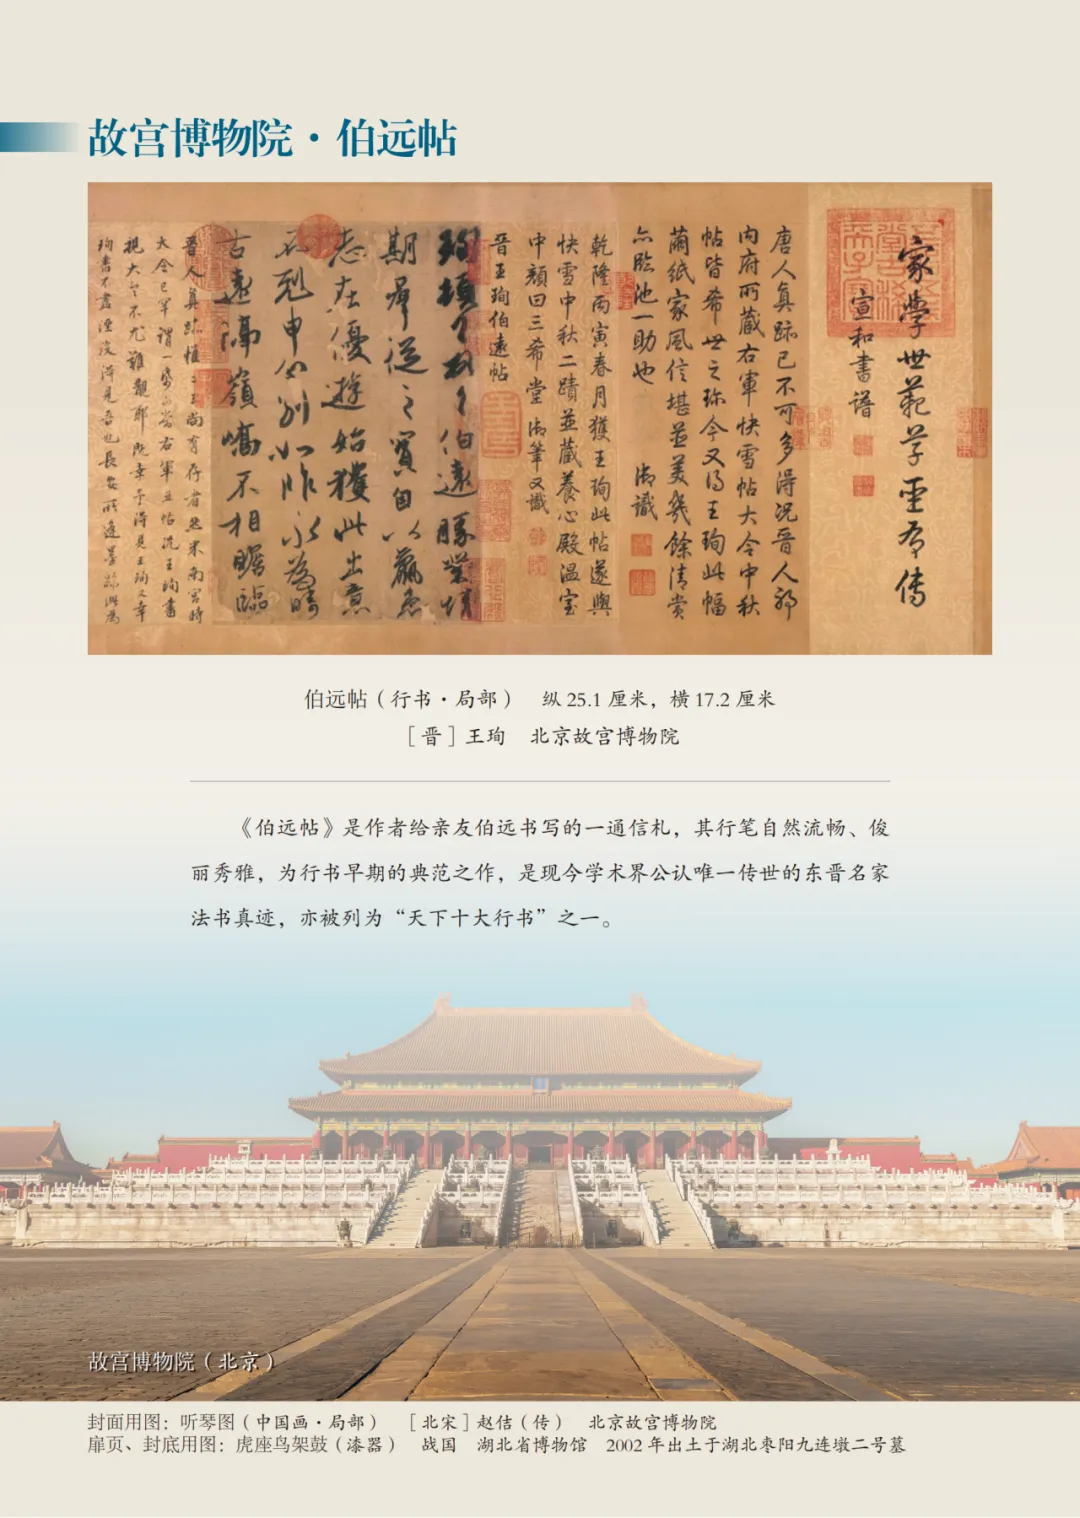 故宫博物院·伯远帖
家学世范草圣有传
宣和书谱
唐人真跡已不可多得况晋人耶
内府所藏右軍快雪帖大令中秋
帖皆希世之珎今又得王珣此幅
繭紙家風信堪並美幾餘清赏
亦臨池一助也 御識
乾隆丙寅春月獲王珣此帖遂與
快雪中秋二蹟並藏養心殿温室
中顔曰三希堂御筆又識
晉王珣伯遠帖
珣頓首頓首伯遠勝業情
期群從之寳自以羸患
志在優遊始獲此出意
不剋申分别如昨永為疇
古遠隔嶺嶠不相瞻臨
伯远帖（行书·局部） 纵 25.1 厘米，横 17.2 厘米
［晋］王珣 北京故宫博物院
《伯远帖》是作者给亲友伯远书写的一通信札，其行笔自然流畅、俊
丽秀雅，为行书早期的典范之作，是现今学术界公认唯一传世的东晋名家
法书真迹，亦被列为“天下十大行书”之一。
故宫博物院（北京）
封面用图：听琴图（中国画·局部） ［北宋］赵佶（传） 北京故宫博物院
扉页、封底用图：虎座鸟架鼓（漆器） 战国 湖北省博物馆 2002 年出土于湖北枣阳九连墩二号墓